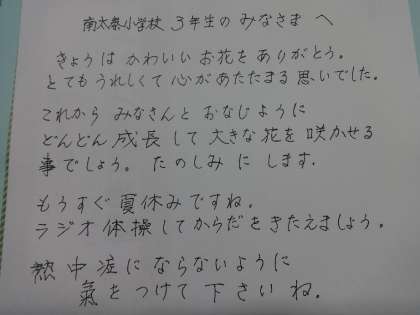 南太秦小学校 3年生の みなさま へ
きょうは かわいい お花を ありがとう。
とても うれしくて 心が あたたまる 思いでした。
これから みなさんと おなじように
どんどん 成長 して 大きな 花を 咲かせる
事でしょう。 たのしみ に します.
もうすぐ 夏休み ですね。
ラジオ 体操 して からだ を きたえましょう。
熱中症に ならないように
氣を つけて 下さい ね.